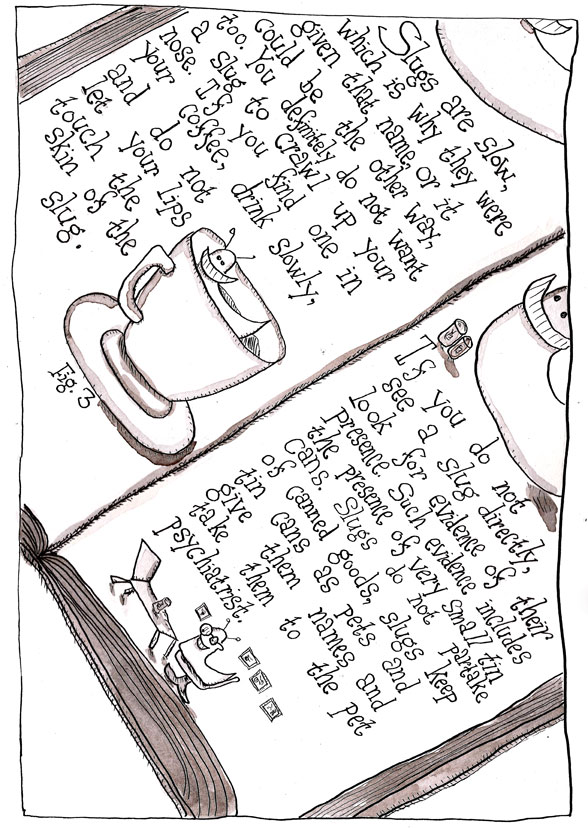 Slugs are slow,
which is why they were
given that name, or it
could be the other way,
too. You definitely do not want
a slug to crawl up your
nose. If you find one in
your coffee, drink slowly,
and do not
let your lips
touch the
skin of the
slug.
Fig. 3
If you do not
see a slug directly,
look for evidence of their
presence. Such evidence includes
the presence of very small tin
cans. Slugs do not partake
of canned goods, slugs keep
tin cans as pets and
give them names and
take them to the pet
psychiatrist.